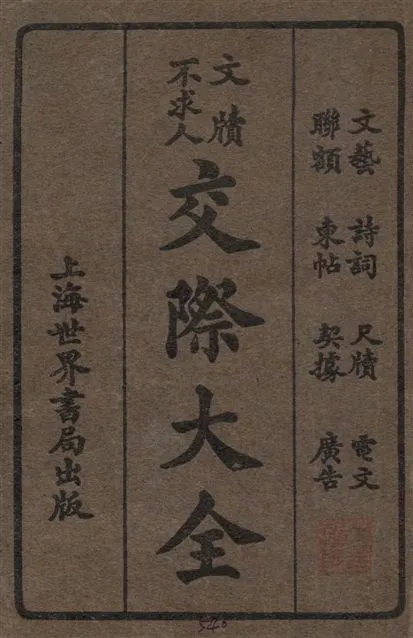 文藝 詩詞 尺牘 電文
聯額 柬帖 契據 廣告
文牘
不求人
交際大全
上海世界書局出版
540